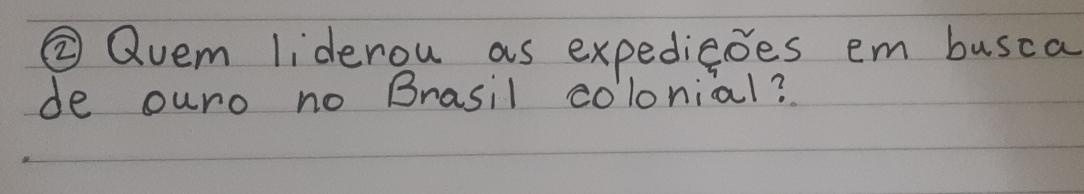 ② Quem liderou as expedições em busca
de ouro no Brasil colonial?